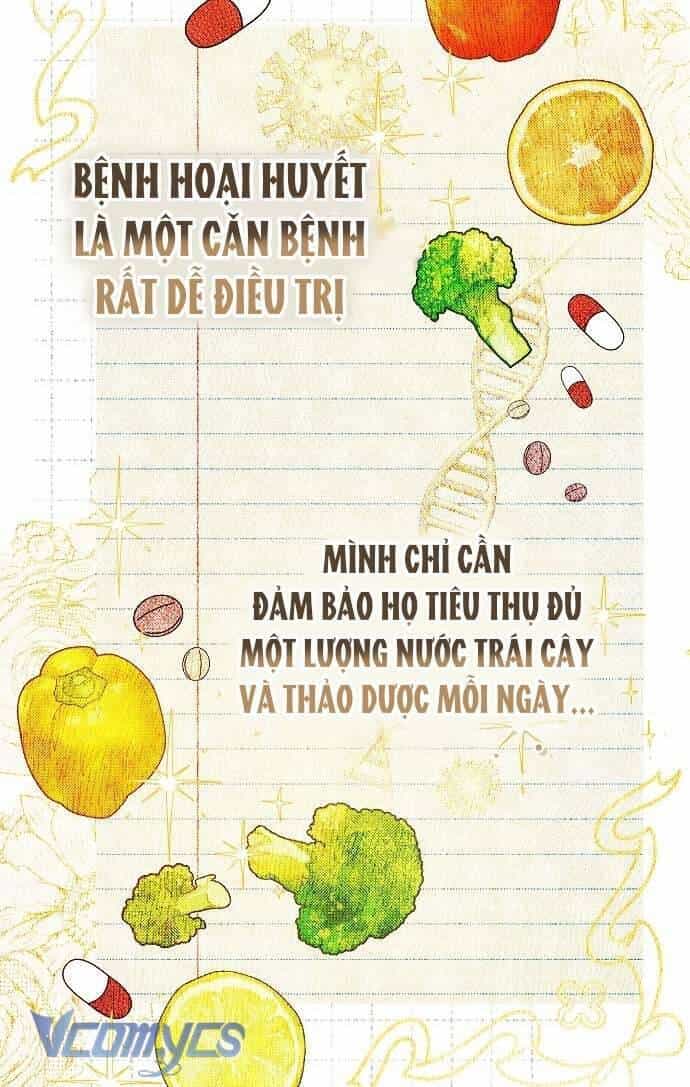 BỆNH HOẠI HUYẾT
LÀ MỘT CĂN BỆNH
RẤT DỄ ĐIỀU TRỊ
MÌNH CHỈ CẦN
ĐẢM BẢO HỌ TIÊU THỤ ĐỦ
MỘT LƯỢNG NƯỚC TRÁI CÂY
VÀ THẢO DƯỢC MỖI NGÀY...
VCOMYCS